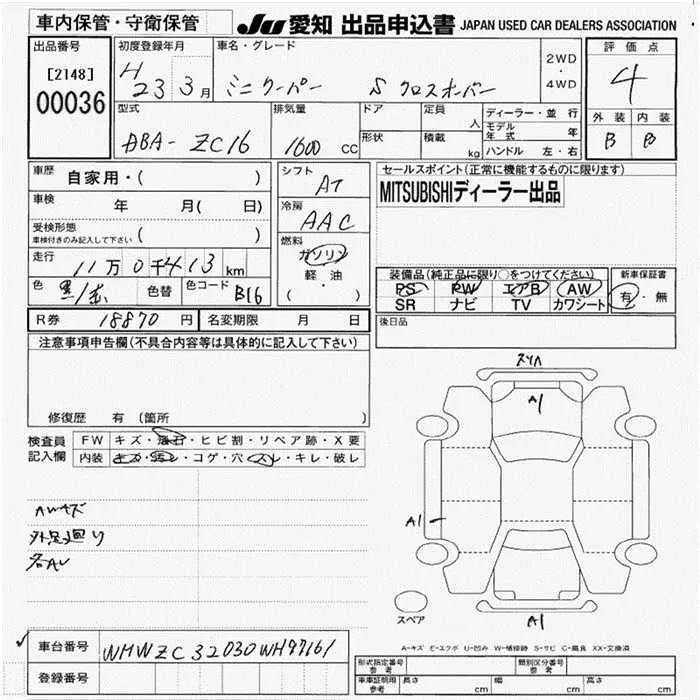 車内保管・守衛保管
JU 愛知 出品申込書 JAPAN USED CAR DEALERS ASSOCIATION
出品番号
[2148]
00036
初度登録年月
H 23 3月
車名・グレード
ミニクーパー S クロスオーバー
2WD
・
4WD
評価点
4
外装 内装
B B
型式
ABA- ZC16
排気量
1600 CC
ドア
形状
定員
人
積載
kg
ディーラー・並行
モデル年式 年
ハンドル 左・右
車歴
自家用・( )
車検 年 月( 日)
受検形態
車検付きのみ記入して下さい ( )
走行 11万0千413km
色 黒/赤 色替 色コード B16
シフト
AT
冷房
AAC
燃料
ガソリン
軽・油
( ・ )
セールスポイント(正常に機能するものに限ります)
MITSUBISHIディーラー出品
装備品(純正品に限り○をつけてください)
PS PW エアB AW
SR ナビ TV カワシート
新車保証書
有・無
R券 18870円 名変期限 月 日
後日品
注意事項申告欄(不具合内容等は具体的に記入して下さい)
修復歴 有 (箇所 )
検査員記入欄
FW キズ・飛石・ヒビ割・リペア跡・X要
内装 キズ・汚レ・コゲ・穴・スレ・キレ・破レ
AWキズ
外足廻り
A1
A1
A1
スペア
A-キズ E-エクボ U-凹み W-補修跡 S-サビ C-腐食 XX-交換済
車台番号 WMWZC32030WH97161
登録番号
形式指定番号 参考
類別区分番号 参考
車庫証明用 参考
長さ cm 幅 cm 高さ cm